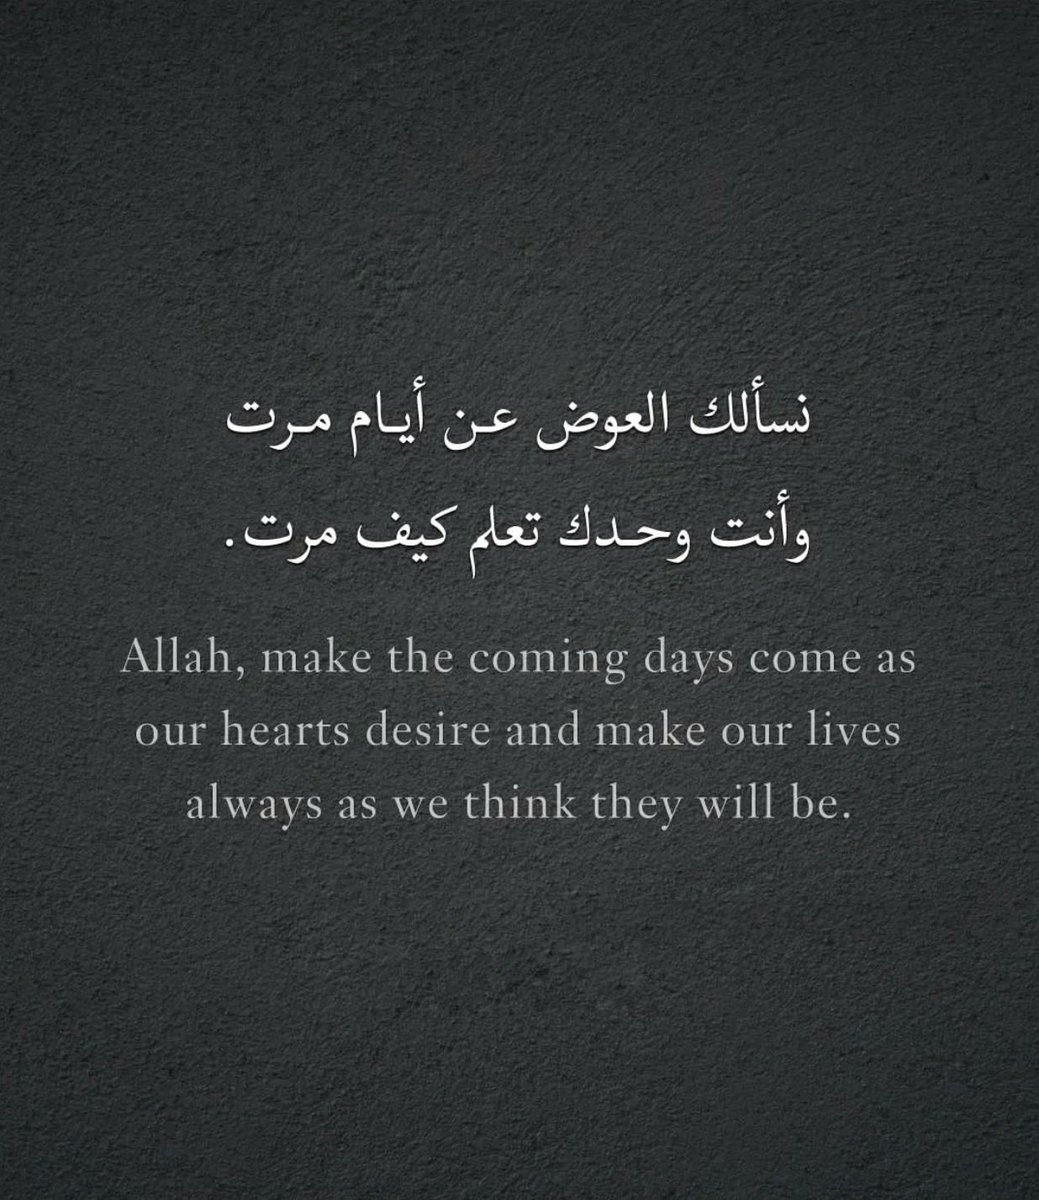 نسألك العوض عن أيام مرت
وأنت وحدك تعلم كيف مرت.
Allah, make the coming days come as
our hearts desire and make our lives
always as we think they will be.